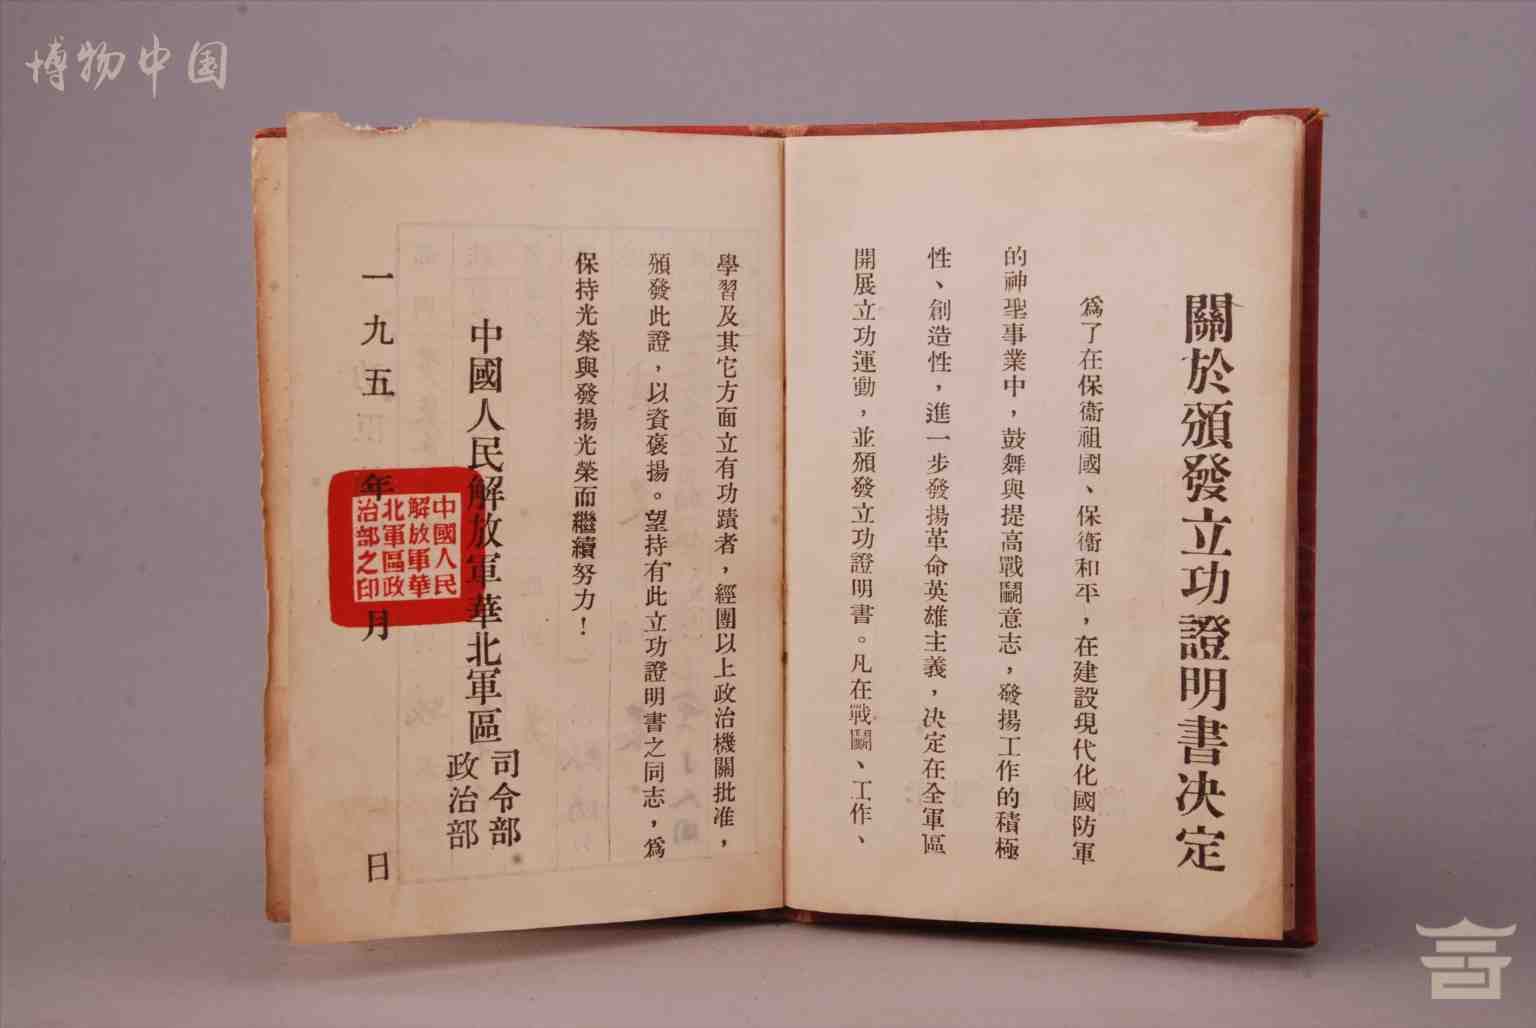 博物中国
關於頒發立功證明書决定
爲了在保衞祖國、保衞和平，在建設現代化國防軍
的神聖事業中，鼓舞與提高戰鬭意志，發揚工作的積極
性、創造性，進一步發揚革命英雄主義，决定在全軍區
開展立功運動，並頒發立功證明書。凡在戰鬭、工作、
學習及其它方面立有功蹟者，經團以上政治機關批准，
頒發此證，以資褒揚。望持有此立功證明書之同志，爲
保持光榮與發揚光榮而繼續努力！
中國人民解放軍華北軍區
司令部
政治部
一九五 年 月 日
中國人民
解放軍華
北軍區政
治部之印